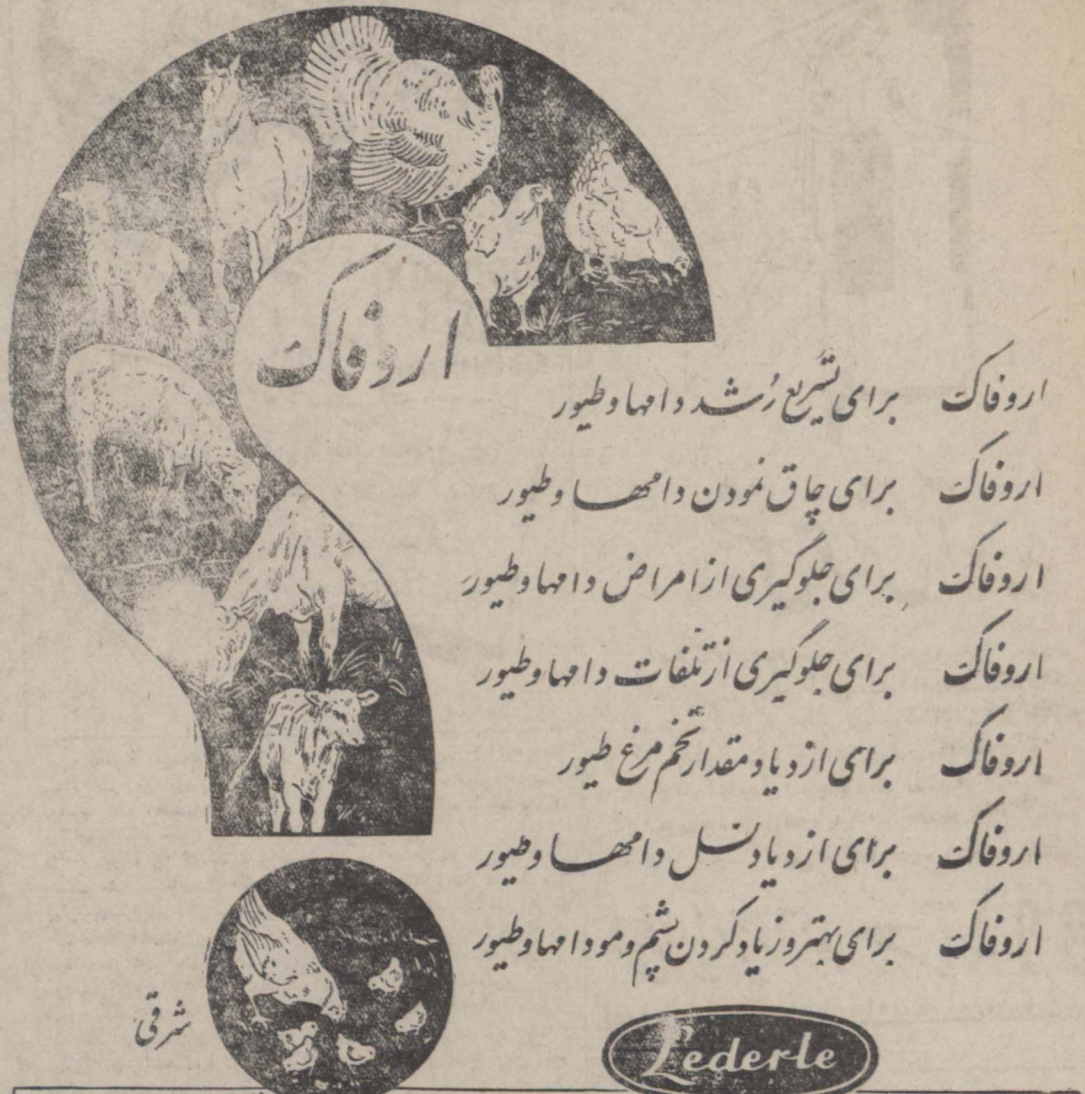 اروفاک
اروفاک برای تسریع رُشد دامها و طیور
اروفاک برای چاق نمودن دامها و طیور
اروفاک برای جلوگیری از امراض دامها و طیور
اروفاک برای جلوگیری از تلفات دامها و طیور
اروفاک برای ازدیاد مقدار تخم مرغ طیور
اروفاک برای ازدیاد نسل دامها و طیور
اروفاک برای بهتر و زیاد کردن پشم و مو دامها و طیور
شرقی
Lederle